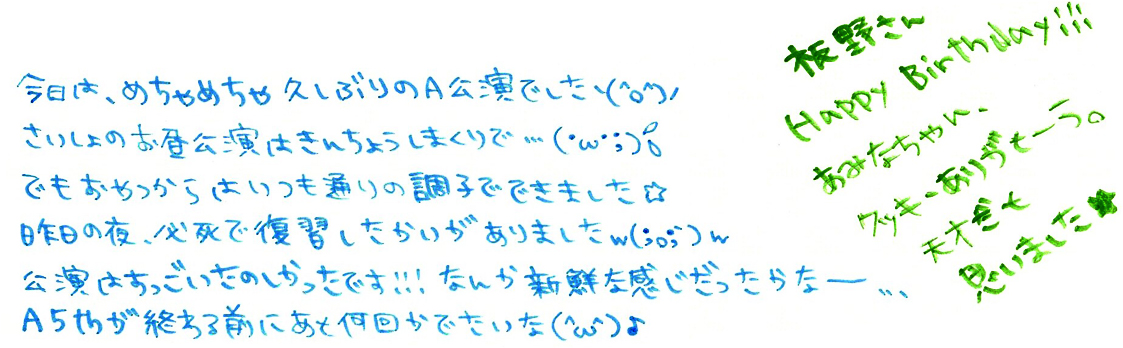 今日は、めちゃめちゃ久しぶりのA公演でした\(^o^)/
さいしょのお昼公演はきんちょうしまくりで…(・ω・;;)
でもおやつからはいつも通りの調子でできました☆
昨日の夜、必死で復習したかいがありましたw(;o;)w
公演はすっごいたのしかったです!!! なんか新鮮な感じだったかなー…
A5thが終わる前にあと何回かでたいな(^ω^)♪
板野さん
Happy Birthday!!!
あみなちゃん、
クッキーありがとーう。
天才だと
思いました★